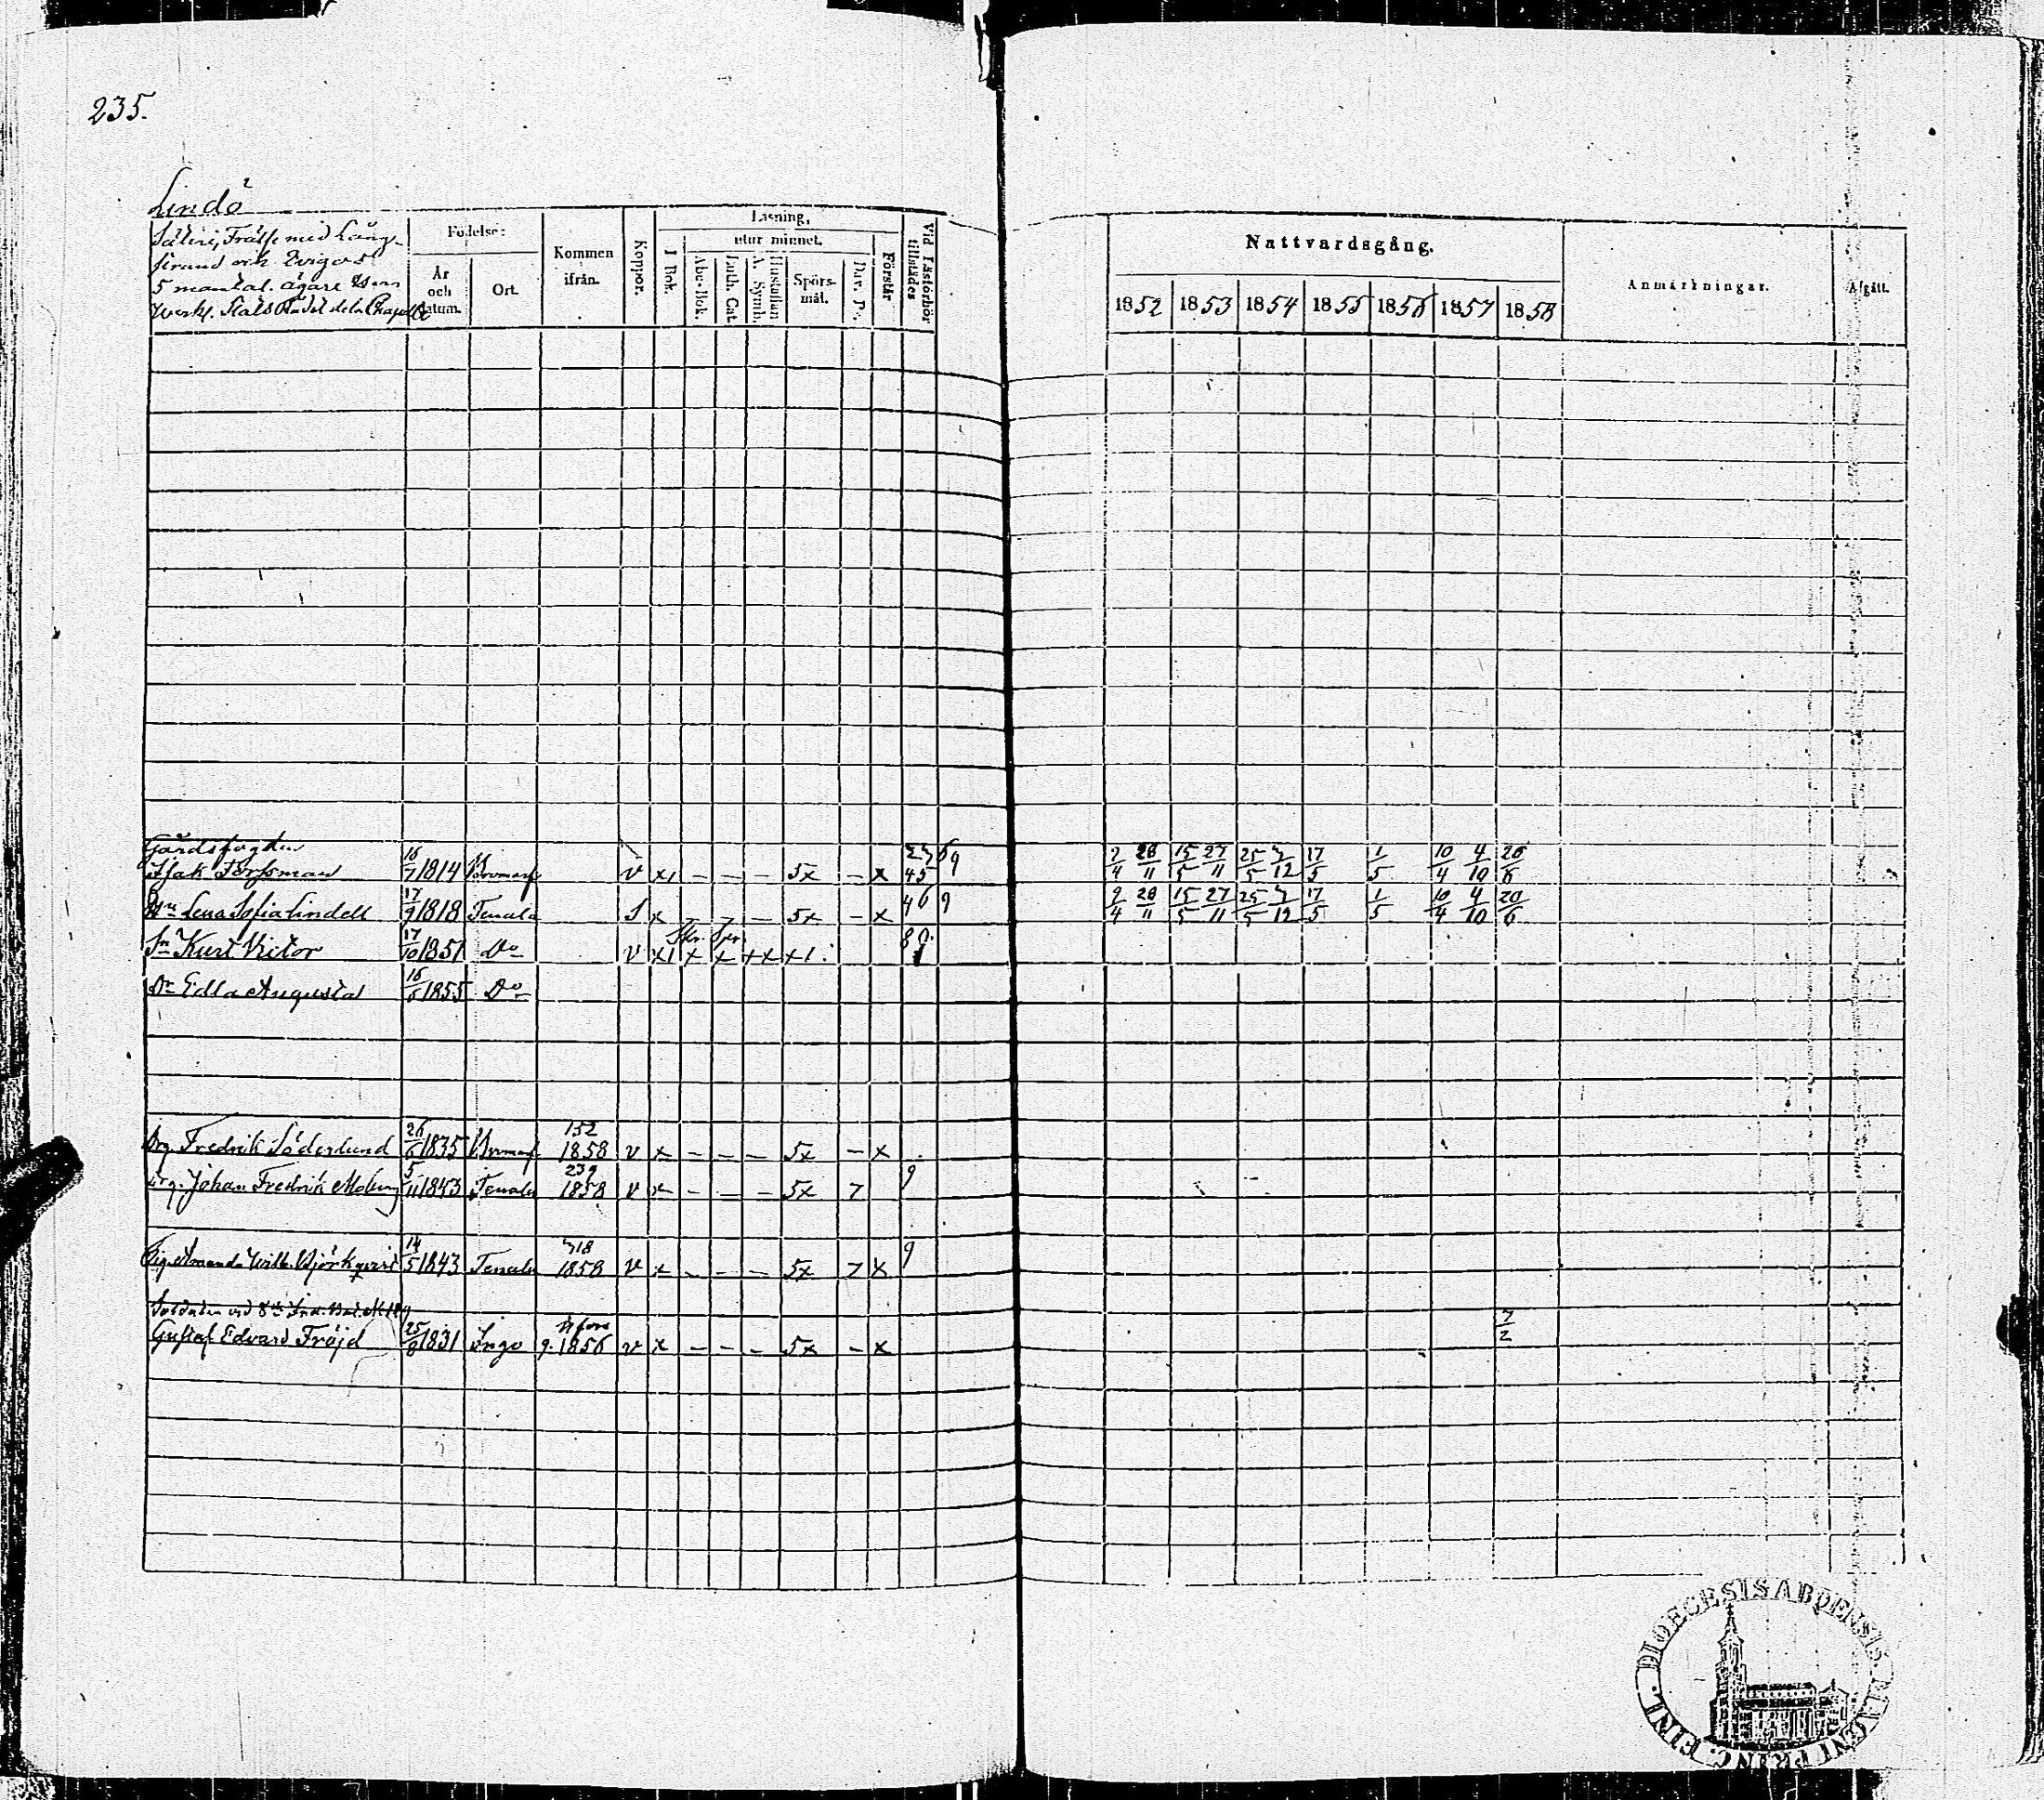 235.
Lindö
Säteri, Frälse med Lång-
strand och
5 mantal. ägare
Werkl. Stats Rådet de la Chapelle
Födelse:
År och datum.
Ort.
Kommen ifrån.
Koppor.
Läsning,
utur minnet.
I Bok.
Abc-Bok.
Luth. Cat.
A. Symb.
Hustaflan
Spörs-mål.
Dav. P.
Förstår
Vid Läsförhör tillstädes
Nattvardsgång.
1852 1853 1854 1855 1856 1857 1858
Anmärkningar.
Afgått.
Gårdsfogden
Isak Forssman 16/7 1814 Bromarf v x1 – – – 5x – x 45 9 7/4 28/11 15/5 27/11 25/5 3/12 17/5 1/5 10/4 4/10 20/6
Hu Lena Sofia Lindell 17/9 1818 Tenala S x – – – 5x – x 4 6 9 7/4 28/11 15/5 27/11 25/5 3/12 17/5 1/5 10/4 4/10 20/6
Sn Kurt Victor 17/10 1851 Do v x1 x x +x x1 8 9
Dr Edla Augusta 16/6 1855 Do
Drg. Fredrik Söderlund 26/6 1835 Bromarf 152 1858 v x – – – 5x – x
Drg. Johan Fredrik Moberg 5/11 1843 Tenala 239 1858 v x – – – 5x 7 9
Pig. Amanda Wilh. Björkqvist 14/5 1843 Tenala 318 1858 v x – – – 5x 7 x 9
Soldaten vid 8de Ind. Bat. No 129
Gustaf Edvard Fröjd 25/8 1831 Ingo H:fors 1856 v x – – – 5x – x 7/2
DIOECESIS ABOENSIS